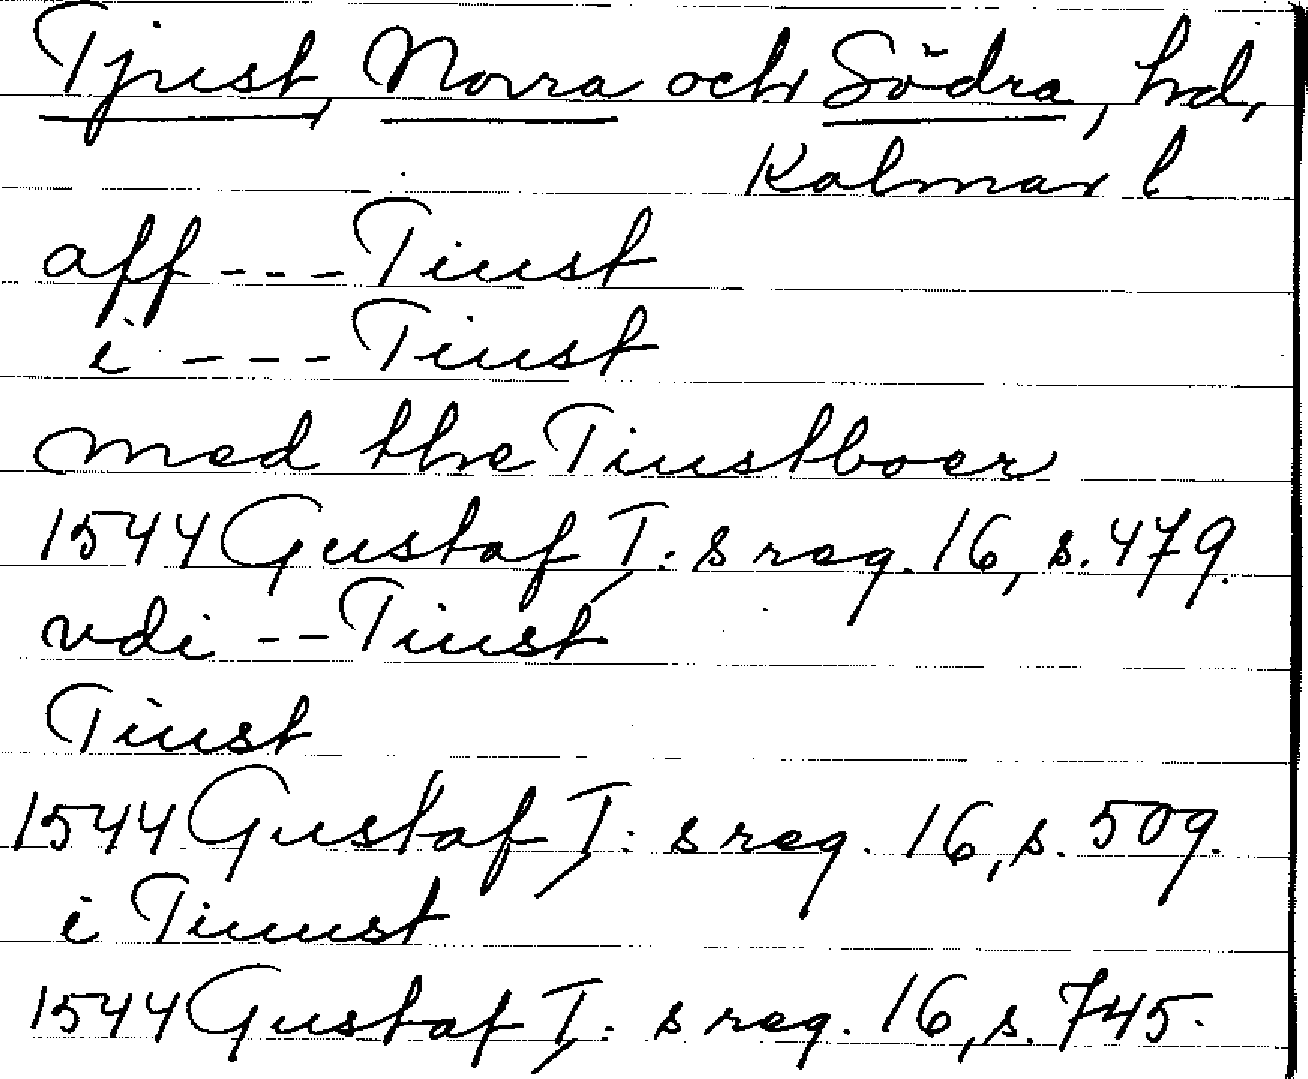 Tjust, Norra och Södra, hd,
Kalmar l
aff --- Tiust
i --- Tiust
med the Tiustboer
1544 Gustaf I: s reg. 16, s. 479.
vdi -- Tiust
Tiust
1544 Gustaf I: s reg. 16, s. 509.
i Tiuust
1544 Gustaf I: s reg. 16, s. 745.